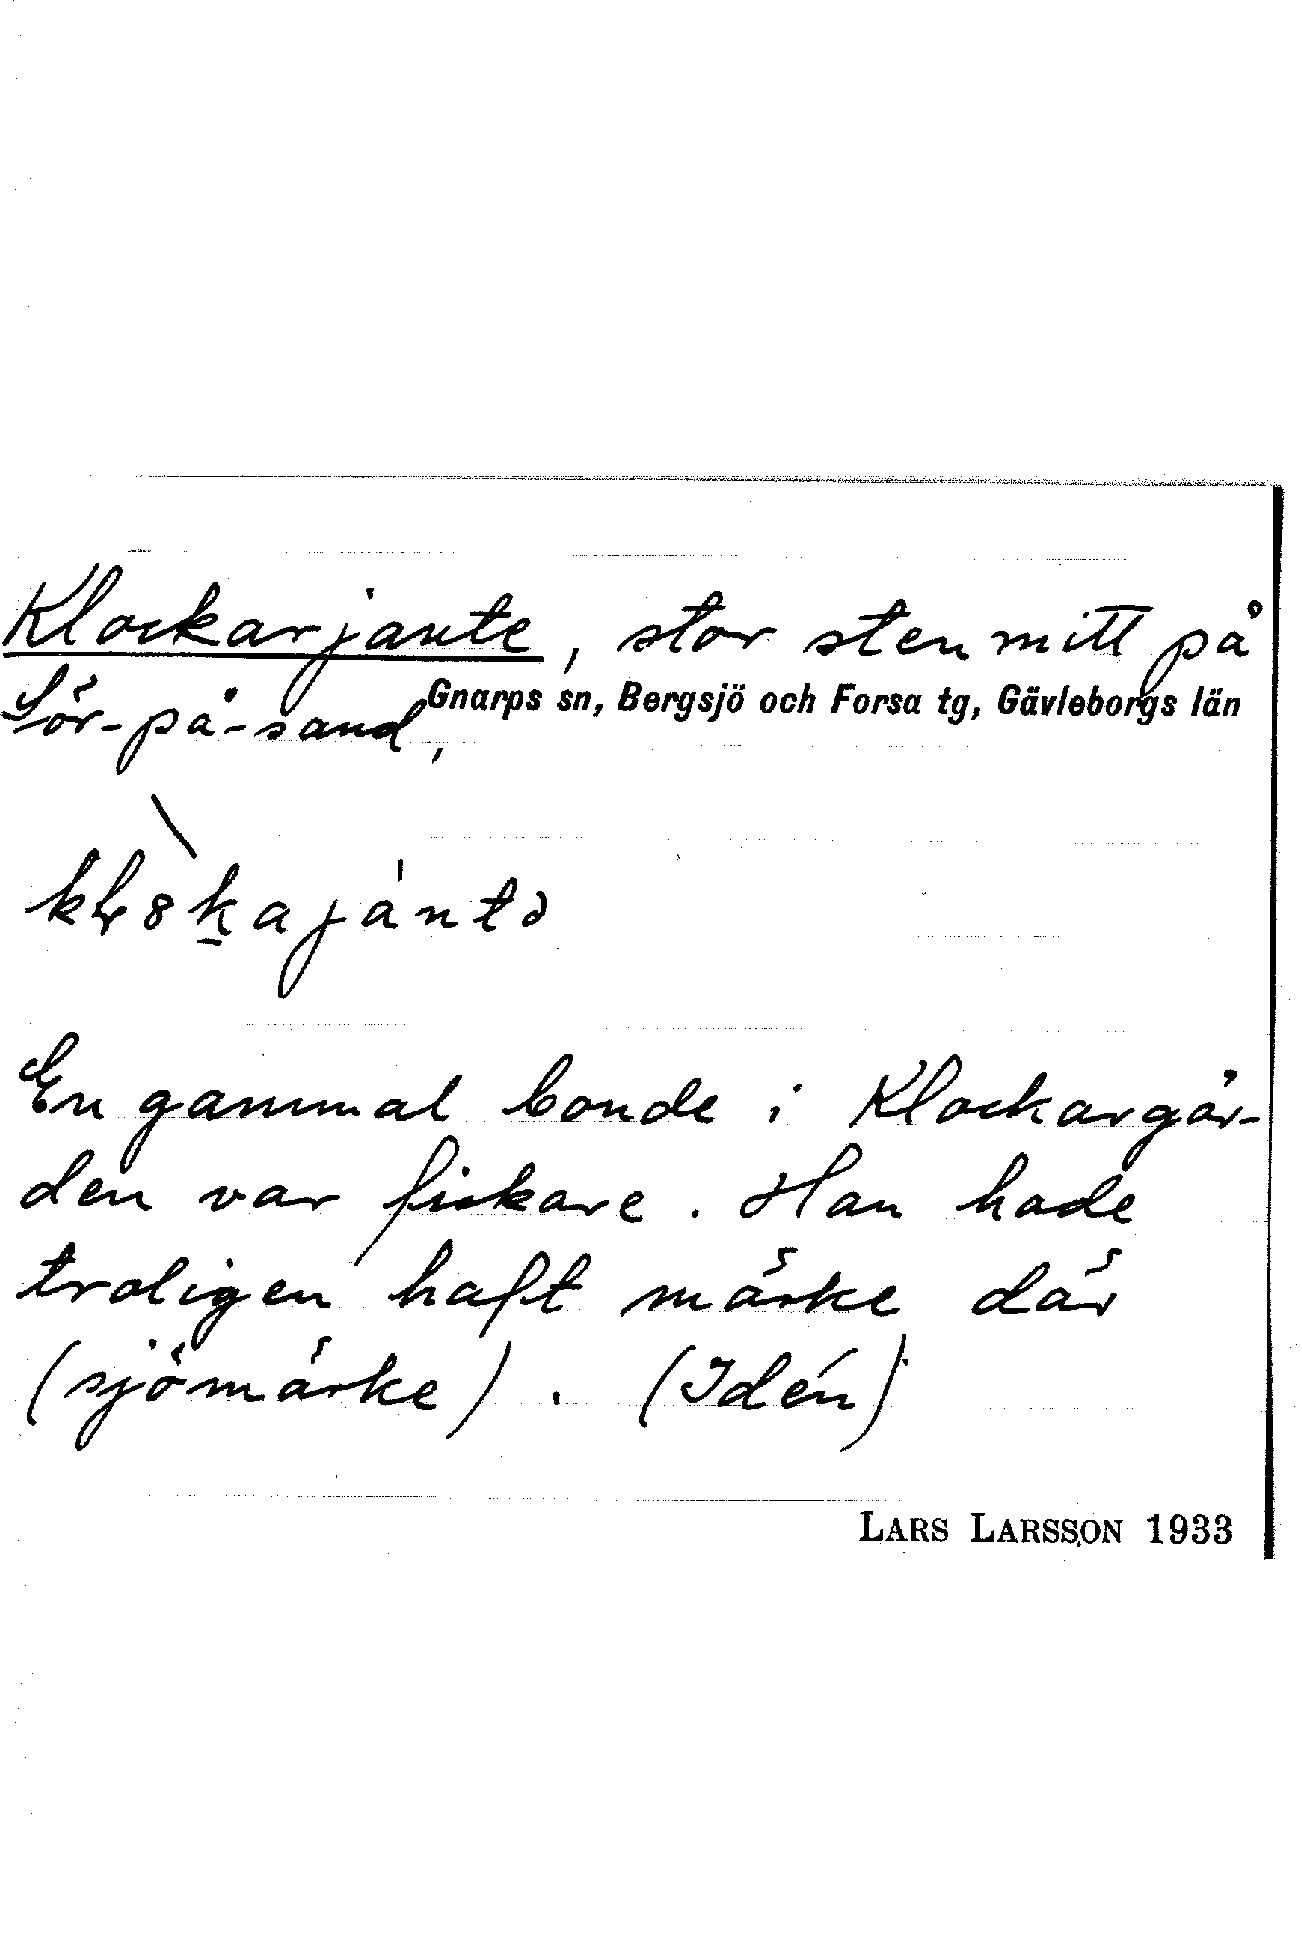 Klockarjante, stor sten mitt på
Gnarps sn, Bergsjö och Forsa tg, Gävleborgs län
Sör-på-sand,
En gammal bonde i Klockargår-
den var fiskare. Han hade
troligen haft märke där
(sjömärke). (Idén)
LARS LARSSON 1933